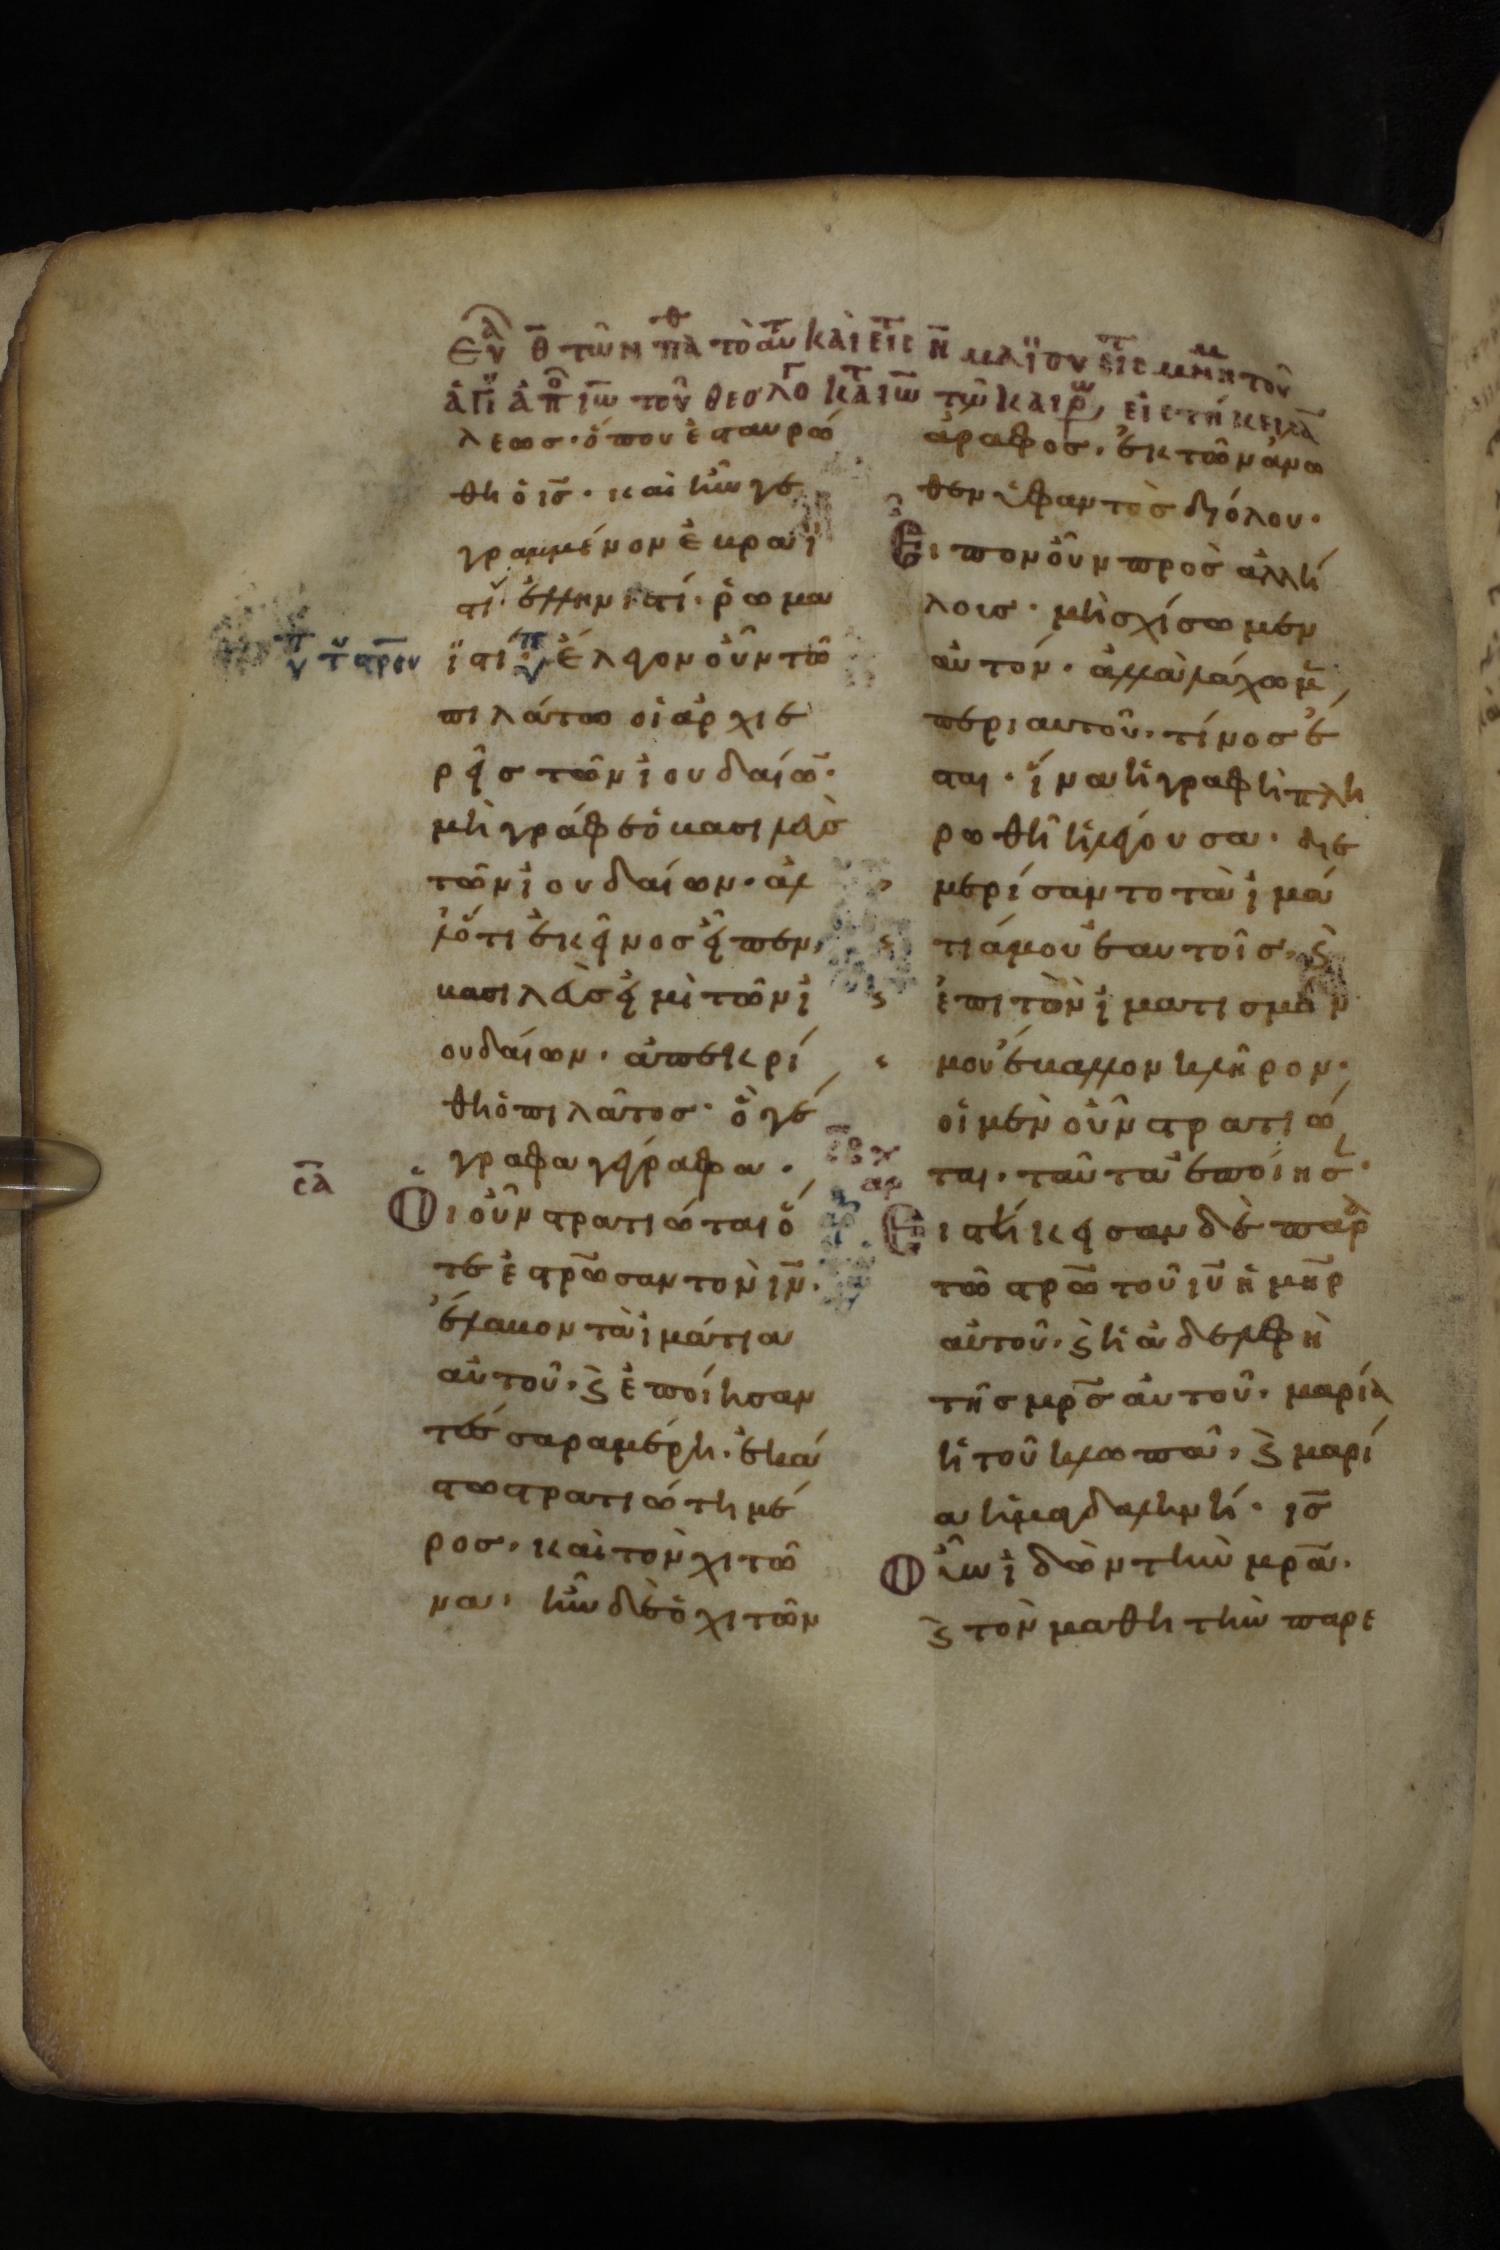 Εὐα θ τῶν παθ τὸ αὐτ καὶ εἰς η μαΐου εἰς μνημ τοῦ
ἁγι ἀπο ιω τοῦ θεολόγ κατ ιω τῶ καιρω, εἱστήκεισα
λεως· ὅπου ἐσταυρώ
θη ὁ ις· καὶ ἦν γε
γραμμένον ἑβραϊ
στί· ἑλληνιστί· ῥωμα
ϊστί· ἔλεγον οὖν τῶ
πιλάτω οἱ ἀρχιε
ρεῖς τῶν ἰουδαίω·
μὴ γράφε ὁ βασιλεὺς
τῶν ἰουδαίων· ἀλ
λ' ὅτι ἐκεῖνος εἶπεν,
βασιλεύς εἰμὶ τῶν ἰ
ουδαίων· ἀπεκρί
θη ὁ πιλᾶτος· ὃ γέ
γραφα γέγραφα·
σα
Οἱ οὖν στρατιῶται ὅ
τε ἐστρωσαν τὸν ιν·
ἔλαβον τὰ ἱμάτια
αὐτοῦ, ϗ ἐποίησαν
τέσσαρα μέρη· ἑκά
στω στρατιώτη μέ
ρος, καὶ τὸν χιτῶ
να, ἦν δὲ ὁ χιτὼν
ἄραφος, ἐκ τῶν ἄνω
θεν ὑφαντὸς δι' ὅλου·
Εἶπον οὖν πρὸς ἀλλή
λοις· μὴ σχίσωμεν
αὐτόν· ἀλλὰ λάχωμ
περι αυτοῦ, τίνος ἔ
σται· ἵνα ἡ γραφὴ πλη
ρωθῆ ἡ λέγουσα· διε
μερίσαντο τὰ ἱμά
τιά μου ἑαυτοῖς, ϗ
ἐπι τὸν ἱματισμόν
μου ἔβαλλον κλῆρον·
οἱ μὲν οὖν στρατιῶ
ται, ταῦτα ἐποίησ·
Εἱστήκεισαν δὲ παρὰ
τῶ στρω τοῦ ιυ ἡ μηρ
αὐτοῦ, ϗ ἡ ἀδελφὴ
τῆς μρς αὐτοῦ, μαρία
ἡ τοῦ κλωπᾶ, ϗ μαρί
α ἡ μαγδαληνή· ις
Οὖν ἰδὼν τὴν μρα·
ϗ τὸν μαθητὴν παρε